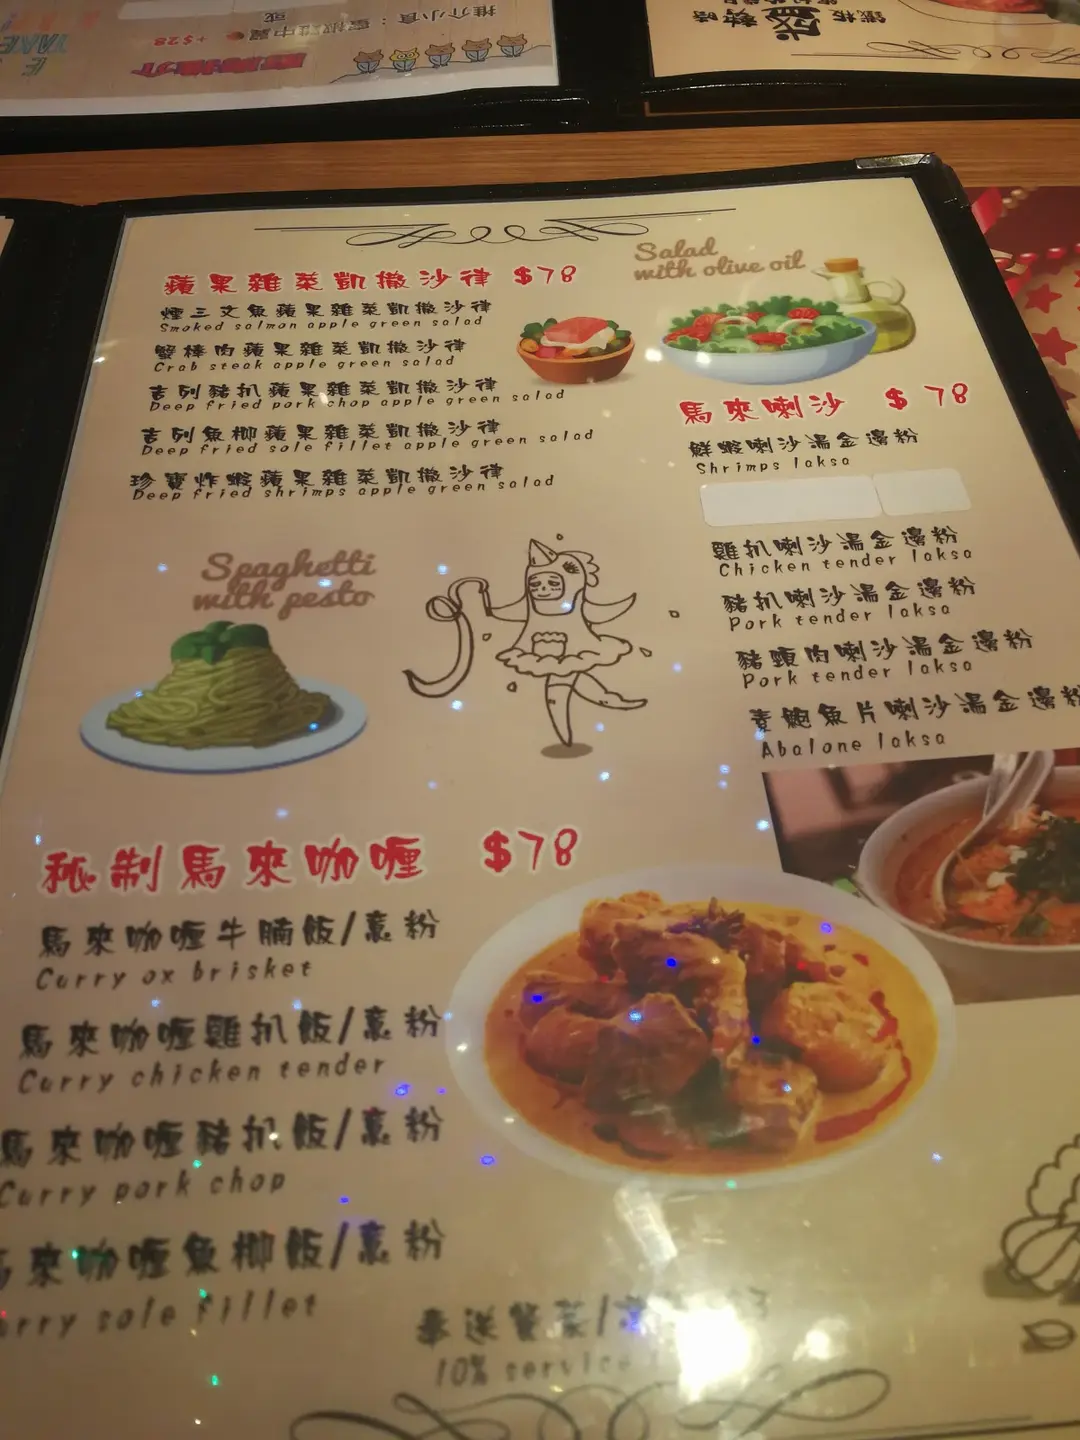 推介小食：蜜椒雞中翼 +$28
或
蘋果雜菜凱撒沙律 $78
煙三文魚蘋果雜菜凱撒沙律
Smoked salmon apple green salad
蟹棒肉蘋果雜菜凱撒沙律
Crab steak apple green salad
吉列豬扒蘋果雜菜凱撒沙律
Deep fried pork chop apple green salad
吉列魚柳蘋果雜菜凱撒沙律
Deep fried sole fillet apple green salad
珍寶炸蝦蘋果雜菜凱撒沙律
Deep fried shrimps apple green salad
Salad
with olive oil
馬來喇沙 $78
鮮蝦喇沙湯金邊粉
Shrimps laksa
雞扒喇沙湯金邊粉
Chicken tender laksa
豬扒喇沙湯金邊粉
Pork tender laksa
豬頸肉喇沙湯金邊粉
Pork tender laksa
素鮑魚片喇沙湯金邊粉
Abalone laksa
Spaghetti
with pesto
秘制馬來咖喱 $78
馬來咖喱牛腩飯/意粉
Curry ox brisket
馬來咖喱雞扒飯/意粉
Curry chicken tender
馬來咖喱豬扒飯/意粉
Curry pork chop
來咖喱魚柳飯/意粉
sole fillet
奉送餐菜/
10% service